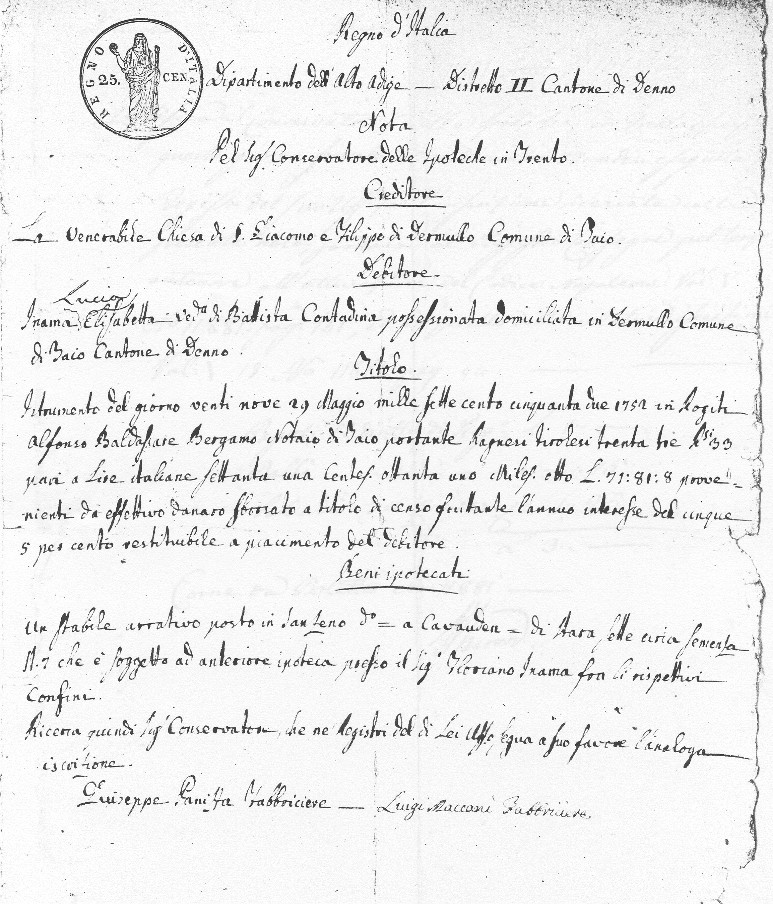 Regno d'Italia
REGNO D'ITALIA
25. CEN.
Dipartimento dell'Alto Adige — Distretto II Cantone di Denno
Nota
Pel Sig.r Conservatore delle Ipoteche in Trento.
Creditore
La Venerabile Chiesa di S. Giacomo e Filippo di Dermullo Comune di Taio.
Debitore.
Lucia
Inama Elisabetta Ved.a di Battista Contadina possessionata domiciliata in Dermullo Comune
di Taio Cantone di Denno.
Titolo.
Istrumento del giorno venti nove 29 Maggio mille sette cento cinquanta due 1752 in Rogiti
Alfonso Baldassare Bergamo Notaio di Taio portante Ragnesi tirolesi trenta tre R.si 33
pari a Lire italiane settanta una Centes. ottanta uno Miles. otto L. 71:81:8 prove=
nienti da effettivo danaro sborsato a titolo di censo fruttante l'annuo interesse del cinque
5 per cento restituibile a piacimento del debitore.
Beni ipotecati
Un stabile arrativo posto in Sanzeno d.o = a Cavauden = di Stara sette circa semenza
N. 7 che è soggetto ad anteriore ipoteca presso il Sig.r Floriano Inama fra li rispettivi
Confini.
Ricerca quindi Sig.r Conservatore, che ne Registri del di Lei Uff.o segua a suo favore l'analoga
iscrizione.
Giuseppe Panizza Fabbriciere — Luigi Maccani Fabbriciere